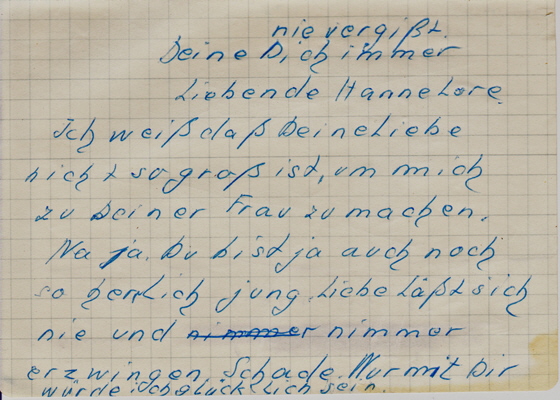 nie vergißt.
Deine Dich immer
Liebende Hannelore.
Ich weiß daß Deine Liebe
nicht so groß ist, um mich
zu Deiner Frau zu machen.
Na ja. Du bist ja auch noch
so herrlich jung. Liebe läßt sich
nie und nimmer nimmer
erzwingen. Schade. Nur mit Dir
würde ich glücklich sein.